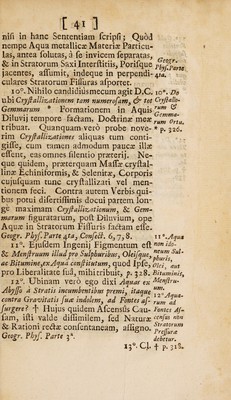 [ 41 ]
nisi in hanc Sententiam scripsi; Quod
nempe Aqua metallicæ Materiæ Particu-
las, antea solutas, à se invicem separatas,
& in Stratorum Saxi Interstitiis, Porisque
jacentes, assumit, indeque in perpendi-
culares Stratorum Fissuras asportet.
Geogr.
Phys. Parte
4ta.
10°. Nihilo candidiùs mecum agit D. C.
ubi Crystallizationem tam numerosam, & tot
Gemmarum * Formationem in Aquis
Diluvij tempore factam, Doctrinæ meæ
tribuat. Quanquam verò probe nove-
rim Crystallizationes aliquas tum conti-
gisse, cum tamen admodum paucæ illæ
essent, eas omnes silentio præterij. Ne-
que quidem, præterquam Massæ crystal-
linæ Echiniformis, & Selenitæ, Corporis
cujusquam tunc crystallizati vel men-
tionem feci. Contra autem Verbis qui-
bus potui disertissimis docui partem lon-
ge maximam Crystallizationum, & Gem-
marum figuratarum, post Diluvium, ope
Aquæ in Stratorum Fissuris factam esse.
Geogr. Phys. Part. 4ta, Consect. 6, 7, 8.
10°. De
Crystallo-
rum &
Gemma-
rum Ortu.
* p. 326.
11°. Ejusdem Ingenij Figmentum est
& Menstruum illud pro Sulphuribus, Oleisque,
ac Bitumine, ex Aqua constitutum, quod Ipse,
pro Liberalitate suâ, mihi tribuit, p. 328.
11°. Aqua
non ido-
neum Sul-
phuris,
Olei, aut
Bituminis,
Menstru-
um.
12°. Ubinam verò ego dixi Aquas ex
Abysso à Stratis incumbentibus premi, itaque
contra Gravitatis suæ indolem, ad Fontes as-
surgere? † Hujus quidem Ascensûs Cau-
sam, isti valde dissimilem, sed Naturæ
& Rationi rectæ consentaneam, assigno.
Geogr. Phys. Parte 3ª.
12°. Aqua-
rum ad
Fontes As-
census non
Stratorum
Pressuræ
debetur.
† p. 328.
13°. Cl.